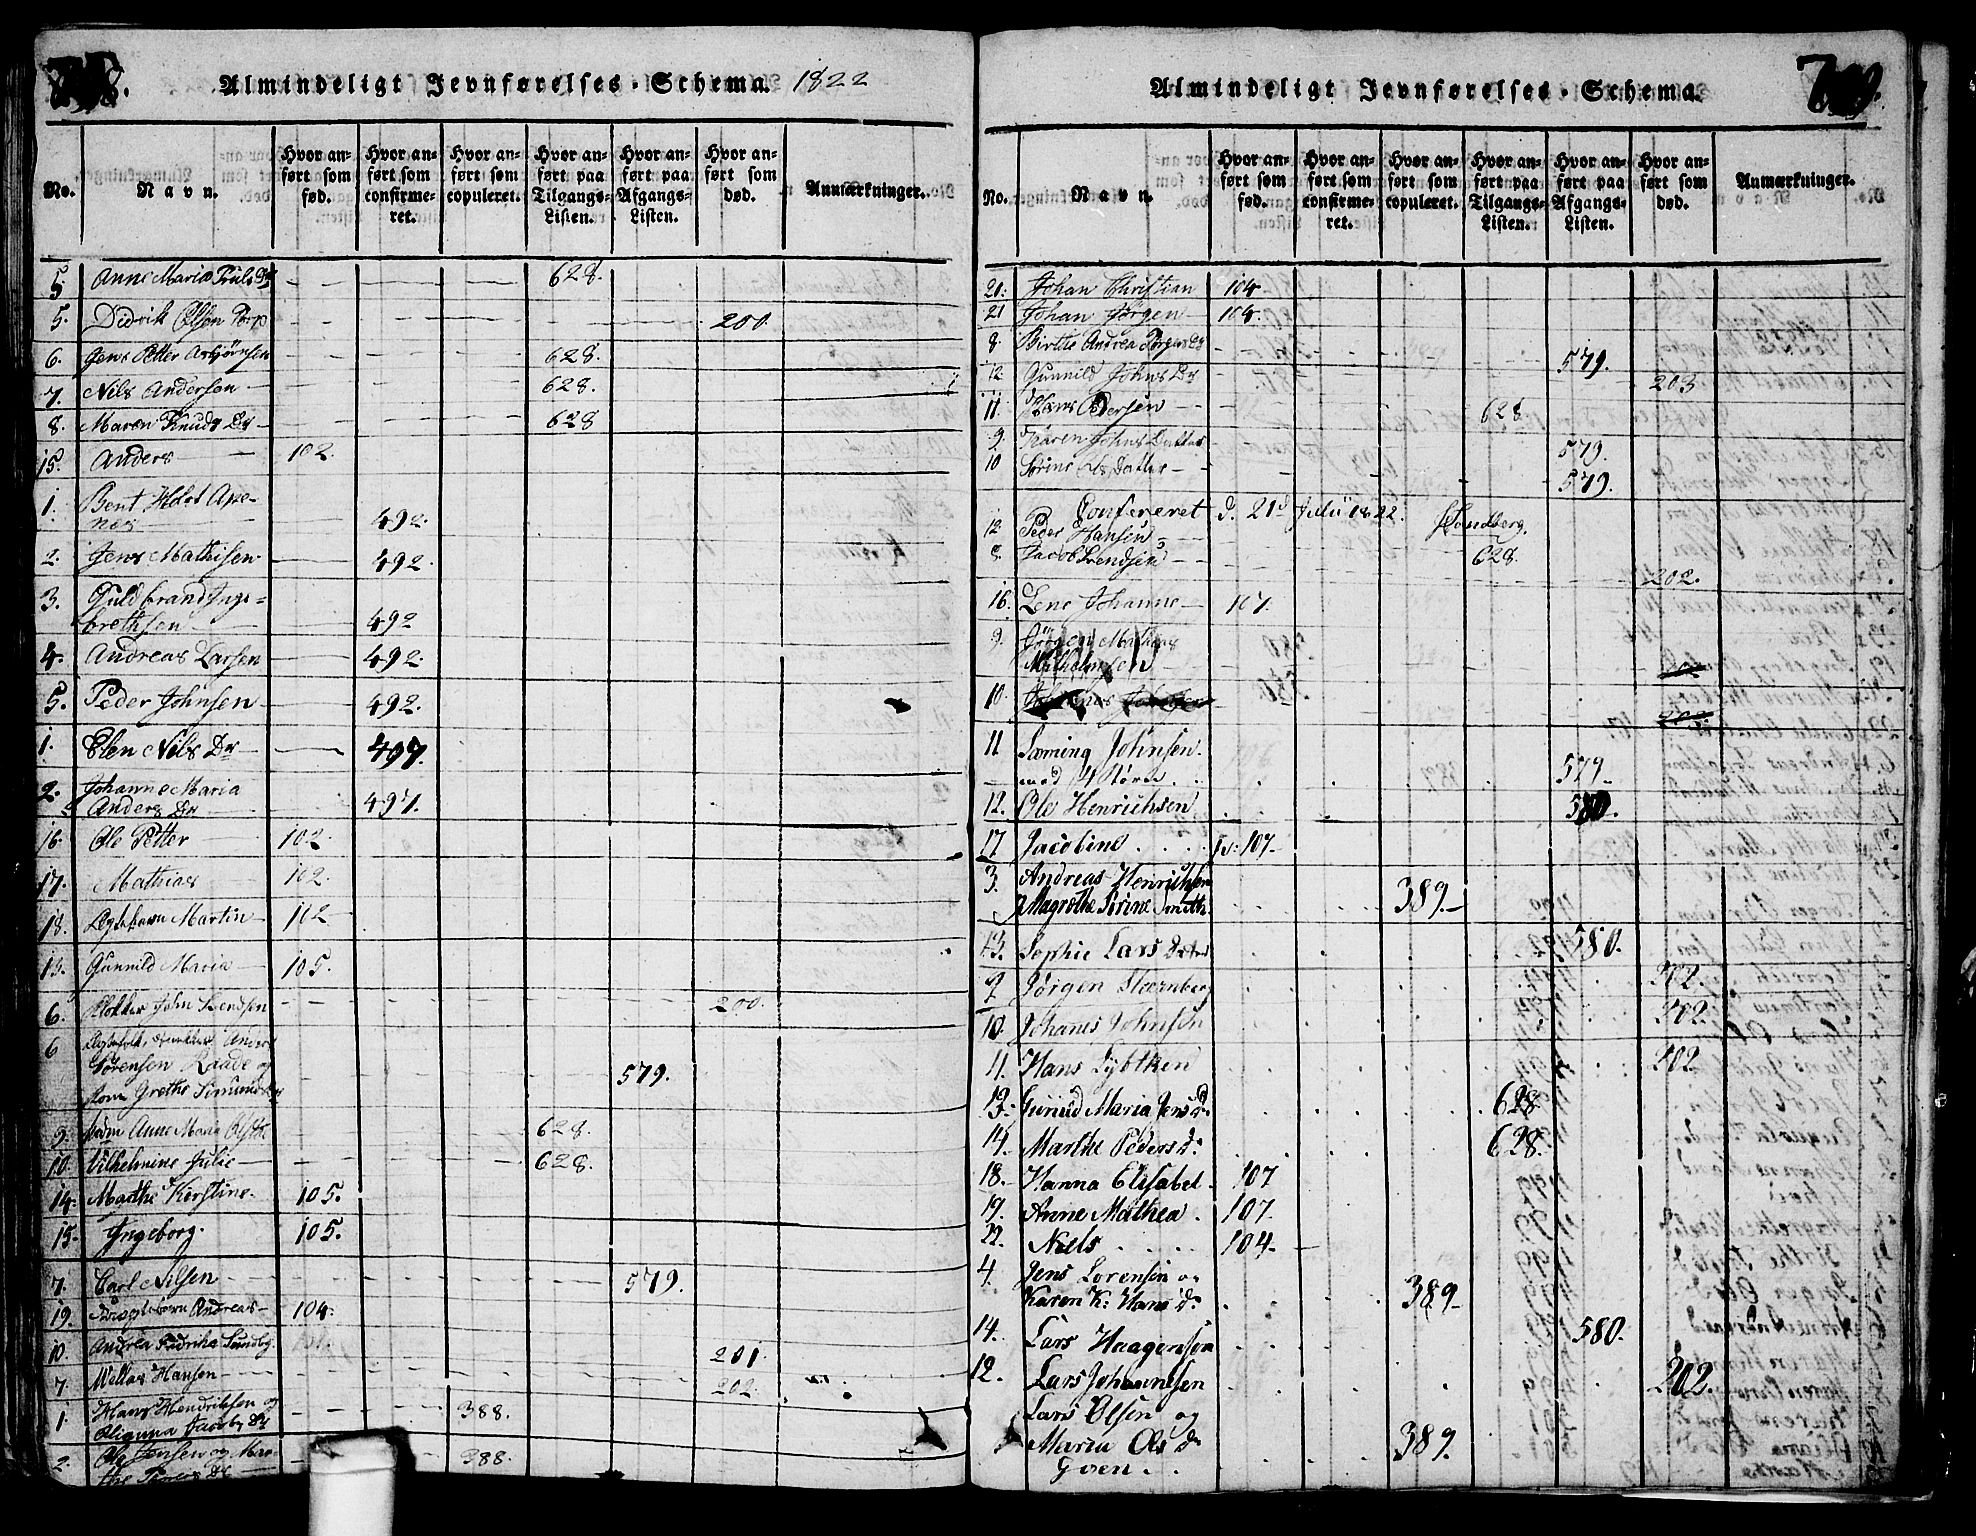 Almindeligt Jevnførelses-Schema. 1822
No. Navn. Hvor anført som fød. Hvor anført som confirmeret. Hvor anført som copuleret. Hvor anført paa Tilgangs-Listen. Hvor anført paa Afgangs-Listen. Hvor anført som død. Anmærkninger.
5 Anne Maria 628.
5. Didrik Olsen Torp 200.
6. Jens Petter Asbjörnsen 628.
7. Nils Andersen 628.
8. Maren Knuds Dr 628
15. Anders 102.
1. Bent Holst Ape-
nes 492.
2. Jens Mathisen 492.
3. Guldbrand Inge-
brethsen 492
4. Andreas Larsen 492.
5. Peder Johnsen 492.
1. Elen Nils Dr 497.
2. Johanne Maria
Anders Dr 497.
16. Ole Petter 102.
17. Mathias 102.
18. Martin 102
13. Gunnild Maria 105.
6. Klokker John Svendsen 200.
6 Anders
Sörensen Raade og
Kone Grethe Simunds Dr 579.
9. Anne Maria 628.
10. Vilhelmine Julie 628.
14. Marthe Kirstine 105.
15. Ingeborg. 105.
7. Carl Nilsen 579.
19. Andreas 104.
10 Andrea Fredrika Sundbg. 201.
7. Hansen 202.
1. Hans Hendriksen og
Jacobs Dr 388.
2. Ole Jensen og Mar-
the Dr 388.
Almindeligt Jevnførelses-Schema.
No. Navn. Hvor anført som fød. Hvor anført som confirmeret. Hvor anført som copuleret. Hvor anført paa Tilgangs-Listen. Hvor anført paa Afgangs-Listen. Hvor anført som død. Anmærkninger.
20. Johan Christian 104
21 Johan Jörgen 104.
8. Birthe Andrea Dr 579.
12 Gunnild Johns Dr 203
11. Hans Pedersen 628
9. Karen Johns Datter 579.
10 Sörine Ols Datter 579.
Confereret d. 21d Julii 1822. Sundberg.
12. Peder Hansen 628.
8. Jacob Svendsen 202.
16. Lene Johanne 107.
9. Jörgen Mathias
10. Johannes
11 Johnsen
med 4 Börn 579.
12. Ole Henrichsen 580.
17 Jacobine 107.
3. Andreas Henrichsen
Magrethe Sirine Smith. 389.
13. Sophie Lars Datter 580.
9 Jörgen Stærnberg 202.
10. Johanes Johnsen 202.
11. Hans Lybtken 202
13. Gunild Maria Jens dr 628
14. Marthe Peders dr 628.
18. Hanna Elisabet 107
19. Anne Mathea 107.
22. Niels 104.
4. Jens Sorensen og
Karen K. Hans dr 389
14. Lars Haagensen 580.
12. Lars Johannesen 202.
Lars Olsen og
Maria Ols dr
Goen 389.